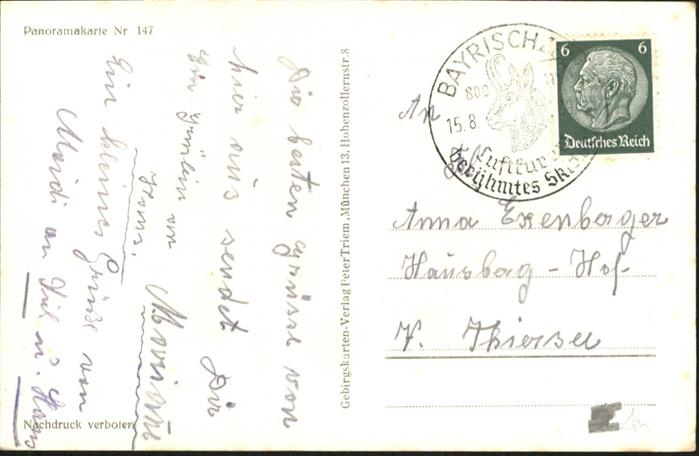 Panoramakarte Nr 147
Die besten Grüsse von
hier aus sendet Dir
Marianne
Ein kleiner Grüße von
Meidi an
Nachdruck verboten
Gebirgskarten-Verlag Peter Triem, München 13, Hohenzollernstr. 8
BAYRISCHZELL
800
15.8.
Luftkur
berühmtes Ski
6 6
Deutsches Reich
An
Anna Exenberger
Hausbag - Hof
P. Thiersee